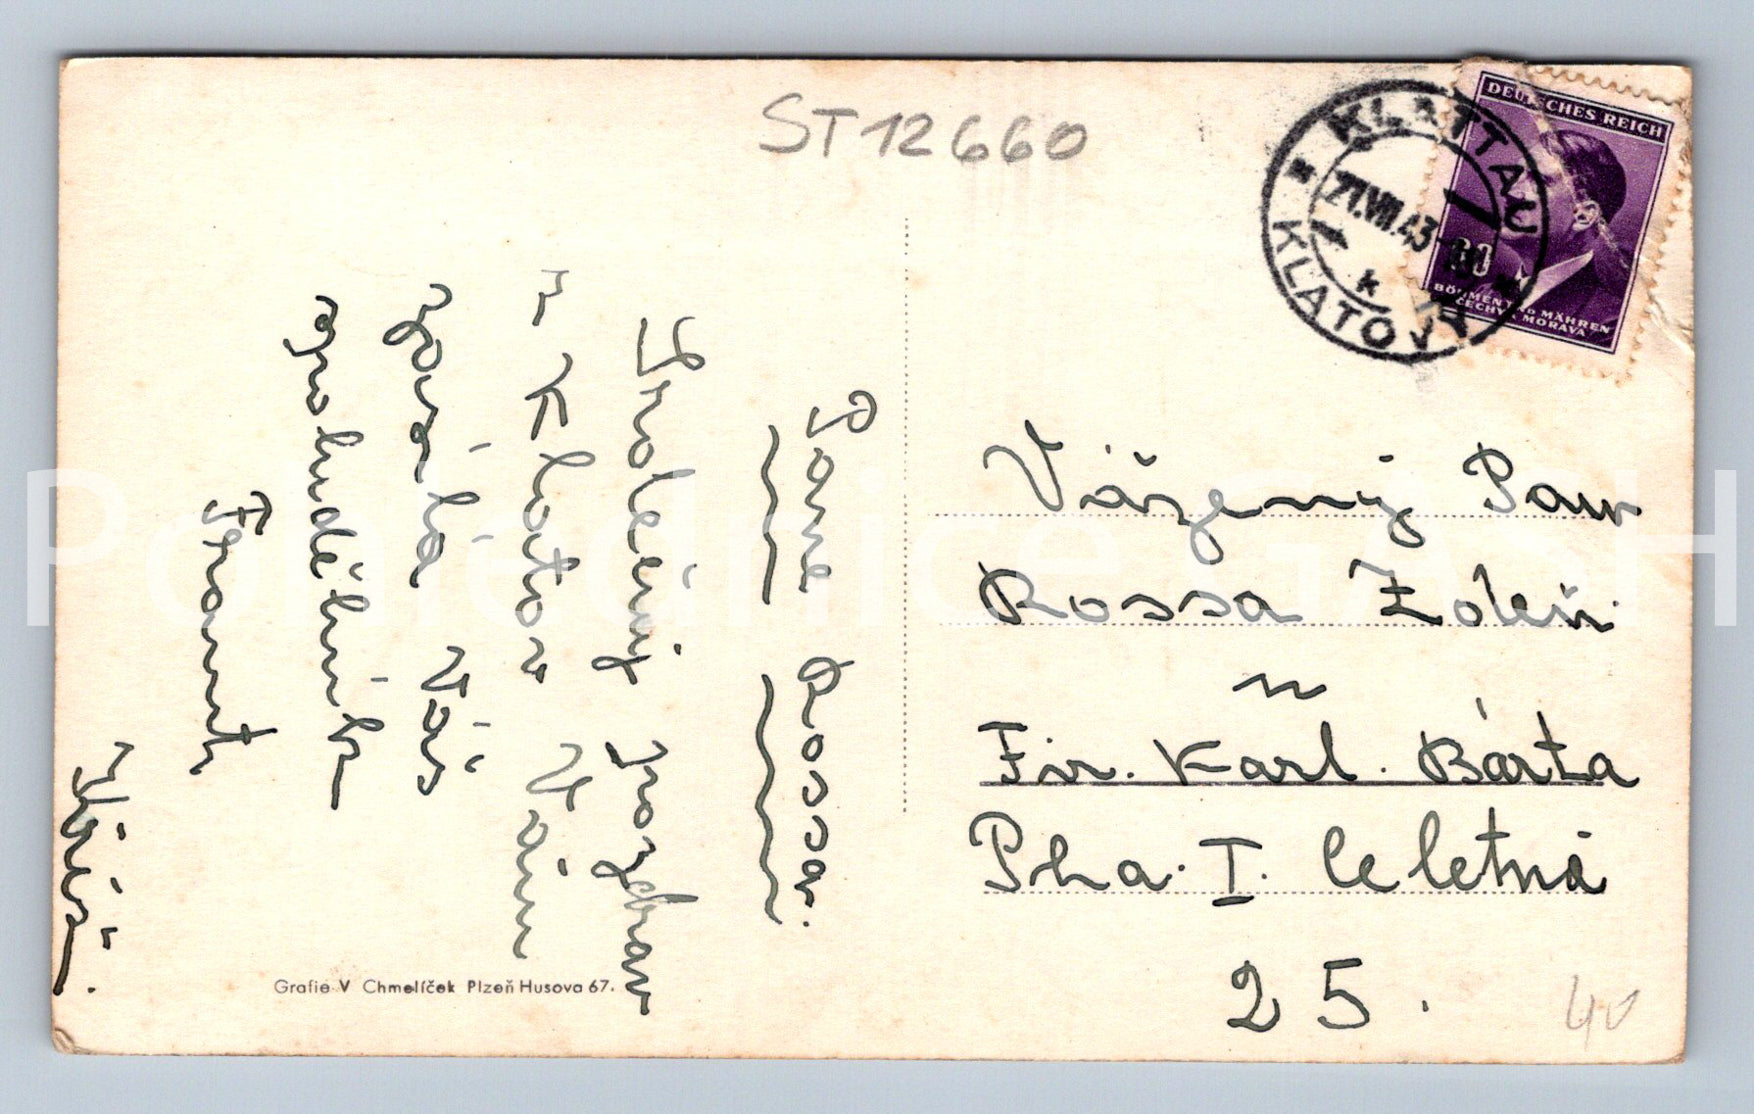 ST12660
DEUTSCHES REICH
BÖHMEN UND MÄHREN
ČECHY A MORAVA
KLATTAU
27.VII.43
KLATOVY
Pane Rossa.
Srdečný pozdrav
z Klatov Vám
zasílá Váš
spoludělník
Frant
Vážený Pan
Rossa Zdeň.
u
Fir. Karl. Bárta
Pha. I. Celetná
25.
40
Grafie V Chmelíček Plzeň Husova 67.
Pohlednice GASH